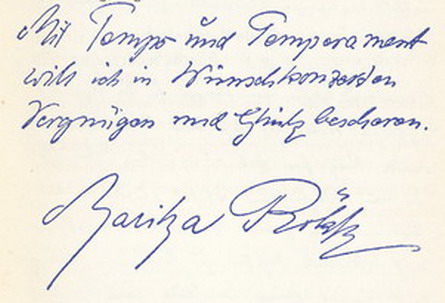 Mit Tempo und Temperament
will ich in Wunschkonzerten
Vergnügen und Glück bescheren.
Marika Rökk